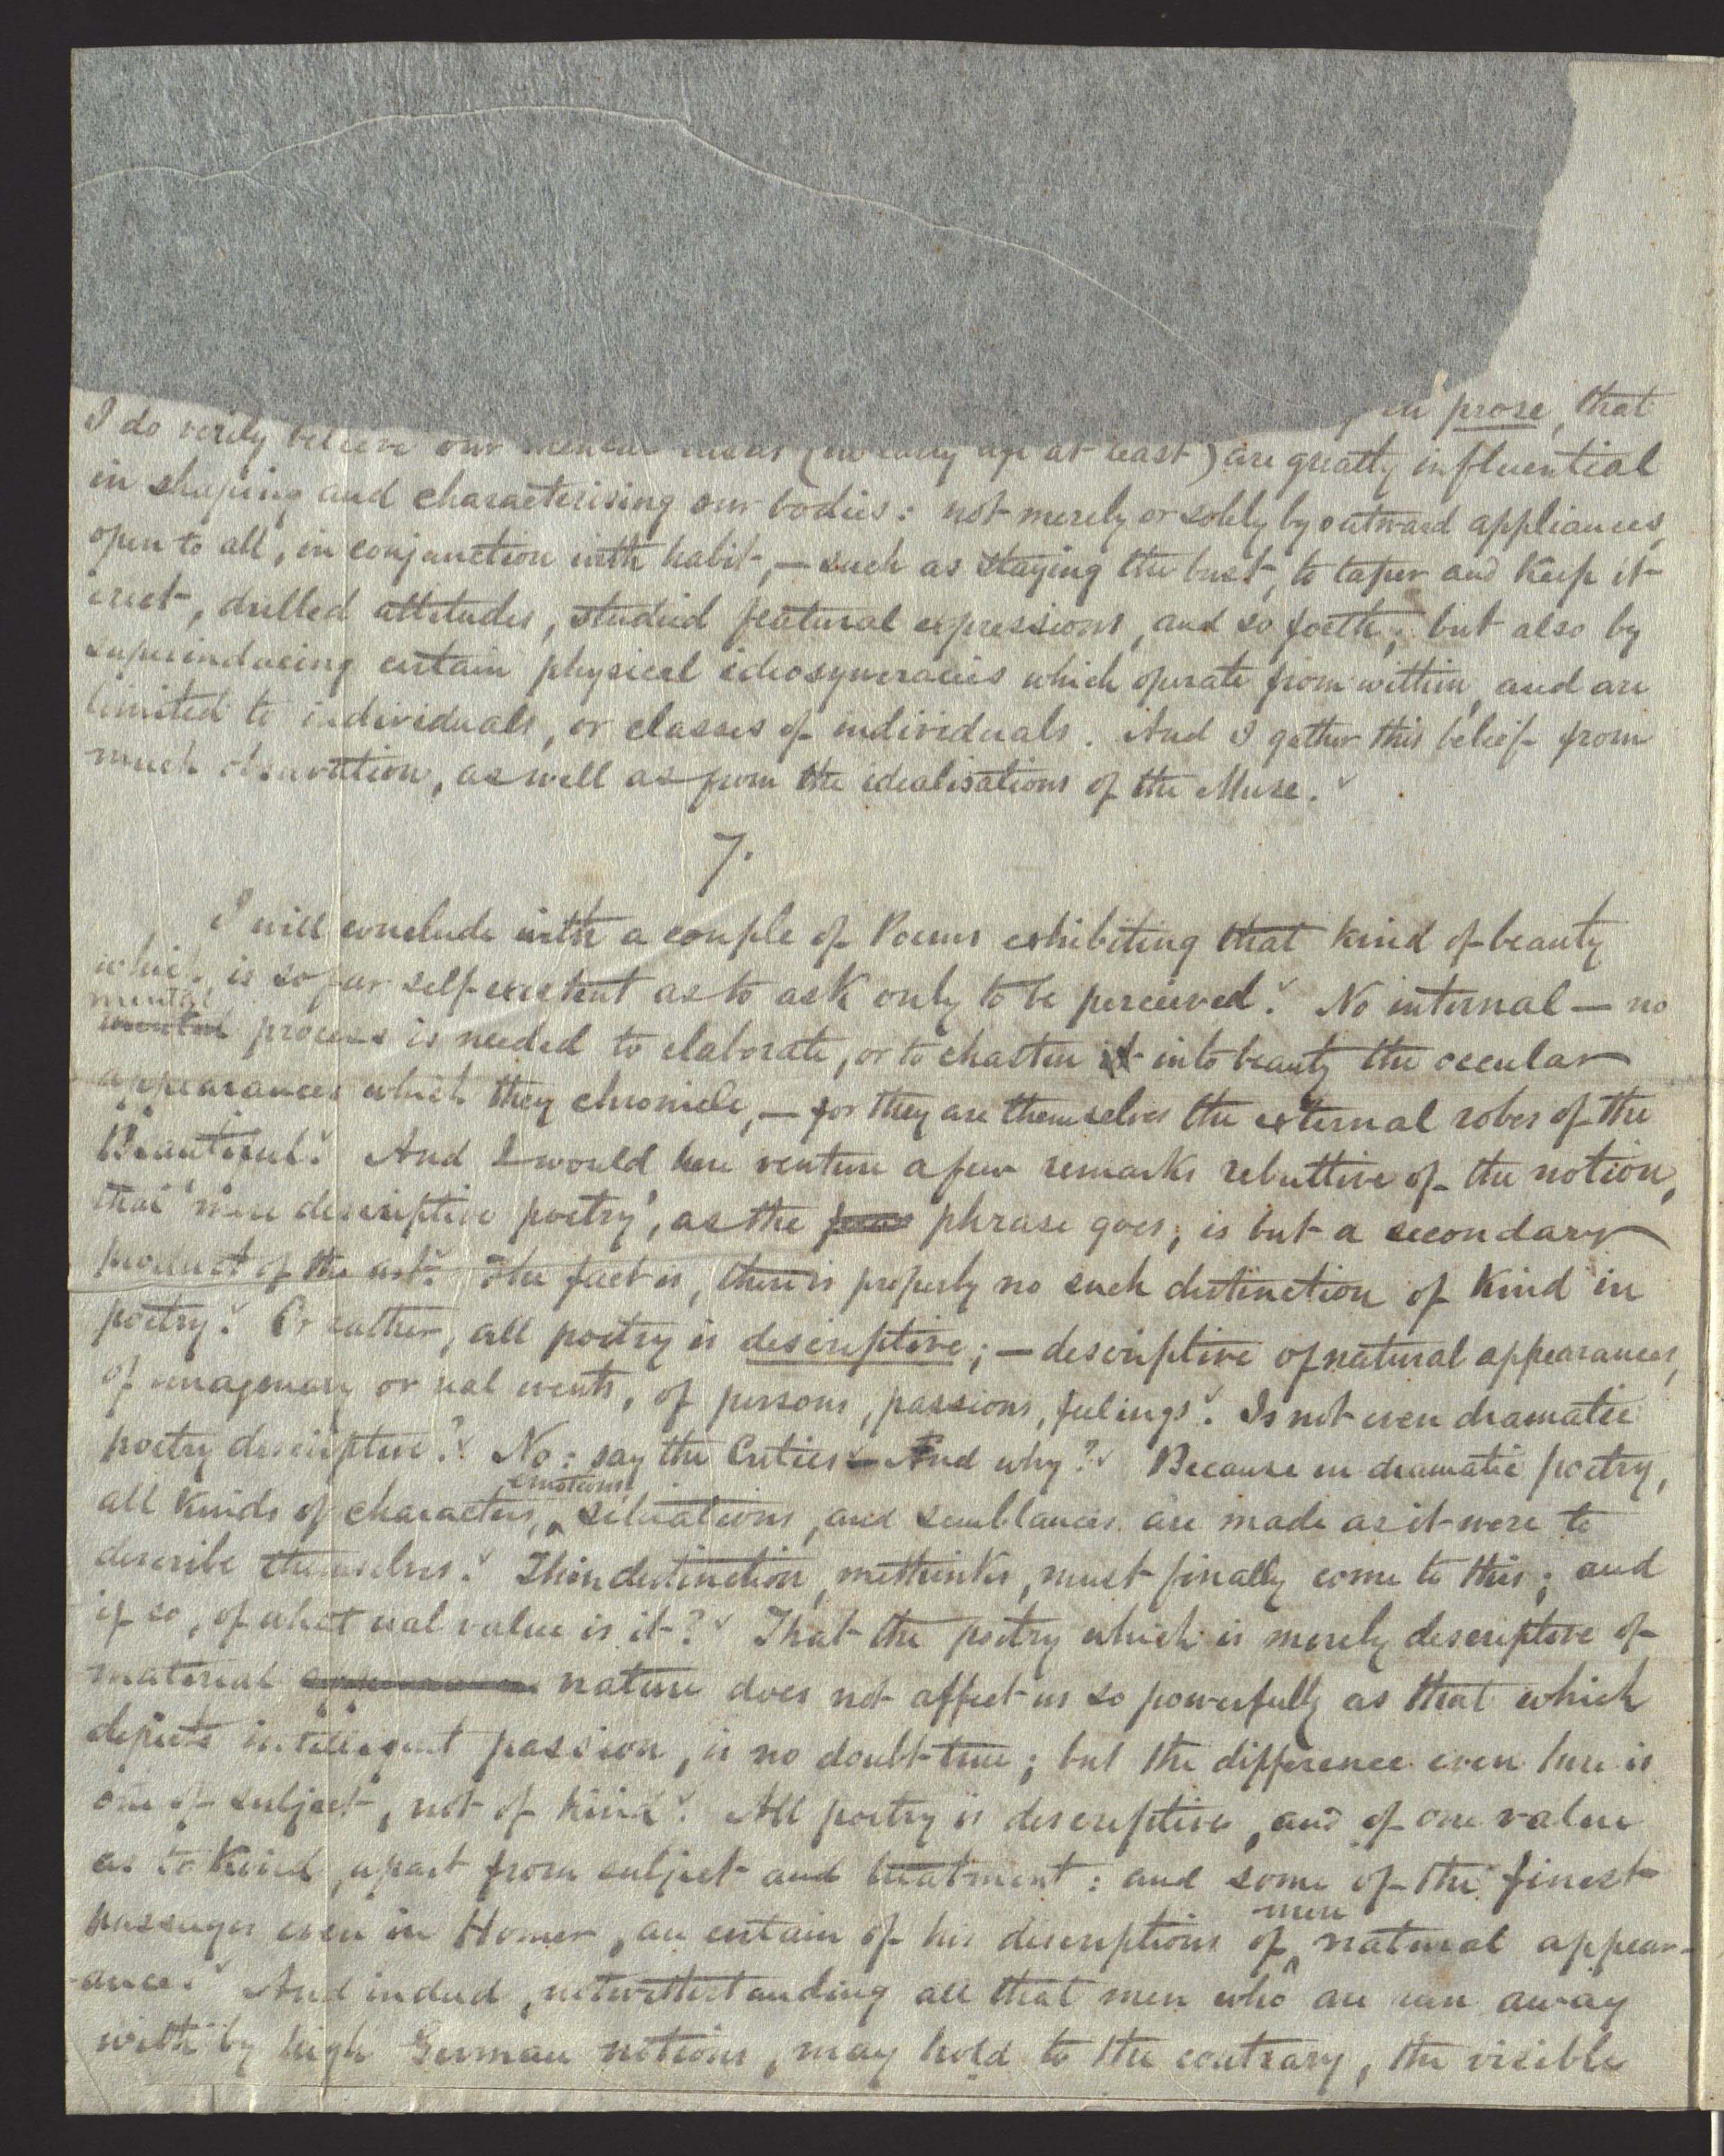 in prose, that
I do verily believe our mental ideas (in early age at least) are greatly influential
in shaping and characterising our bodies: not merely or solely by outward appliances,
open to all, in conjunction with habit,—such as staying the bust, to taper and keep it
erect, drilled attitudes, studied featural expressions, and so forth; but also by
superinducing certain physical ideosyncracies which operate from within, and are
limited to individuals, or classes of individuals. And I gather this belief from
much observation, as well as from the idealisations of the Muse.
7.
I will conclude with a couple of Poems exhibiting that kind of beauty
which is so far self-existent as to ask only to be perceived. No internal — no
mental
process is needed to elaborate, or to chasten it into beauty the occular
appearances which they chronicle,—for they are themselves the external robes of the
Beautiful. And I would here venture a few remarks rebuttive of the notion,
that 'mere descriptive poetry', as the phrase goes, is but a secondary
product of the art. The fact is, there is properly no such distinction of kind in
poetry. Or rather, all poetry is descriptive;—descriptive of natural appearances,
of imaginary or real events, of persons, passions, feelings. Is not even dramatic
poetry descriptive? No: say the Critics—And why? Because in dramatic poetry,
emotions
all kinds of characters, situations, and semblances are made as it were to
describe themselves. Their distinction, methinks, must finally come to this; and
if so, of what real value is it? That the poetry which is merely descriptive of
material nature does not affect us so powerfully as that which
depicts intelligent passion, is no doubt true; but the difference even here is
one of subject, not of kind. All poetry is descriptive, and of one value
as to kind, apart from subject and treatment: and some of the finest
mere
passages even in Homer, are certain of his descriptions of natural appear-
-ance. And indeed, notwithstanding all that men who are run away
with by high German notions, may hold to the contrary, the visible